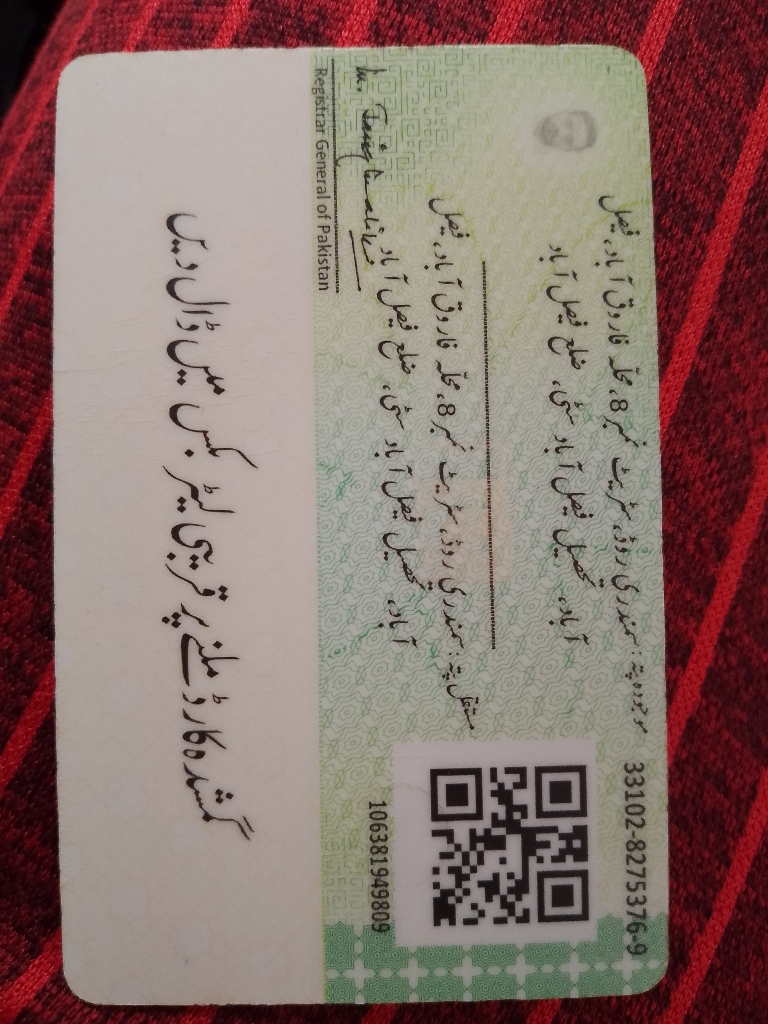 33102-8275376-9
موجودہ پتہ: سمندری روڈ، سٹریٹ نمبر 8، محلہ فاروق آباد، فیصل
آباد، تحصیل فیصل آباد سٹی، ضلع فیصل آباد
مستقل پتہ: سمندری روڈ، سٹریٹ نمبر 8، محلہ فاروق آباد، فیصل
آباد، تحصیل فیصل آباد سٹی، ضلع فیصل آباد
106381949809
Registrar General of Pakistan
گمشدہ کارڈ ملنے پر قریبی لیٹر بکس میں ڈال دیں